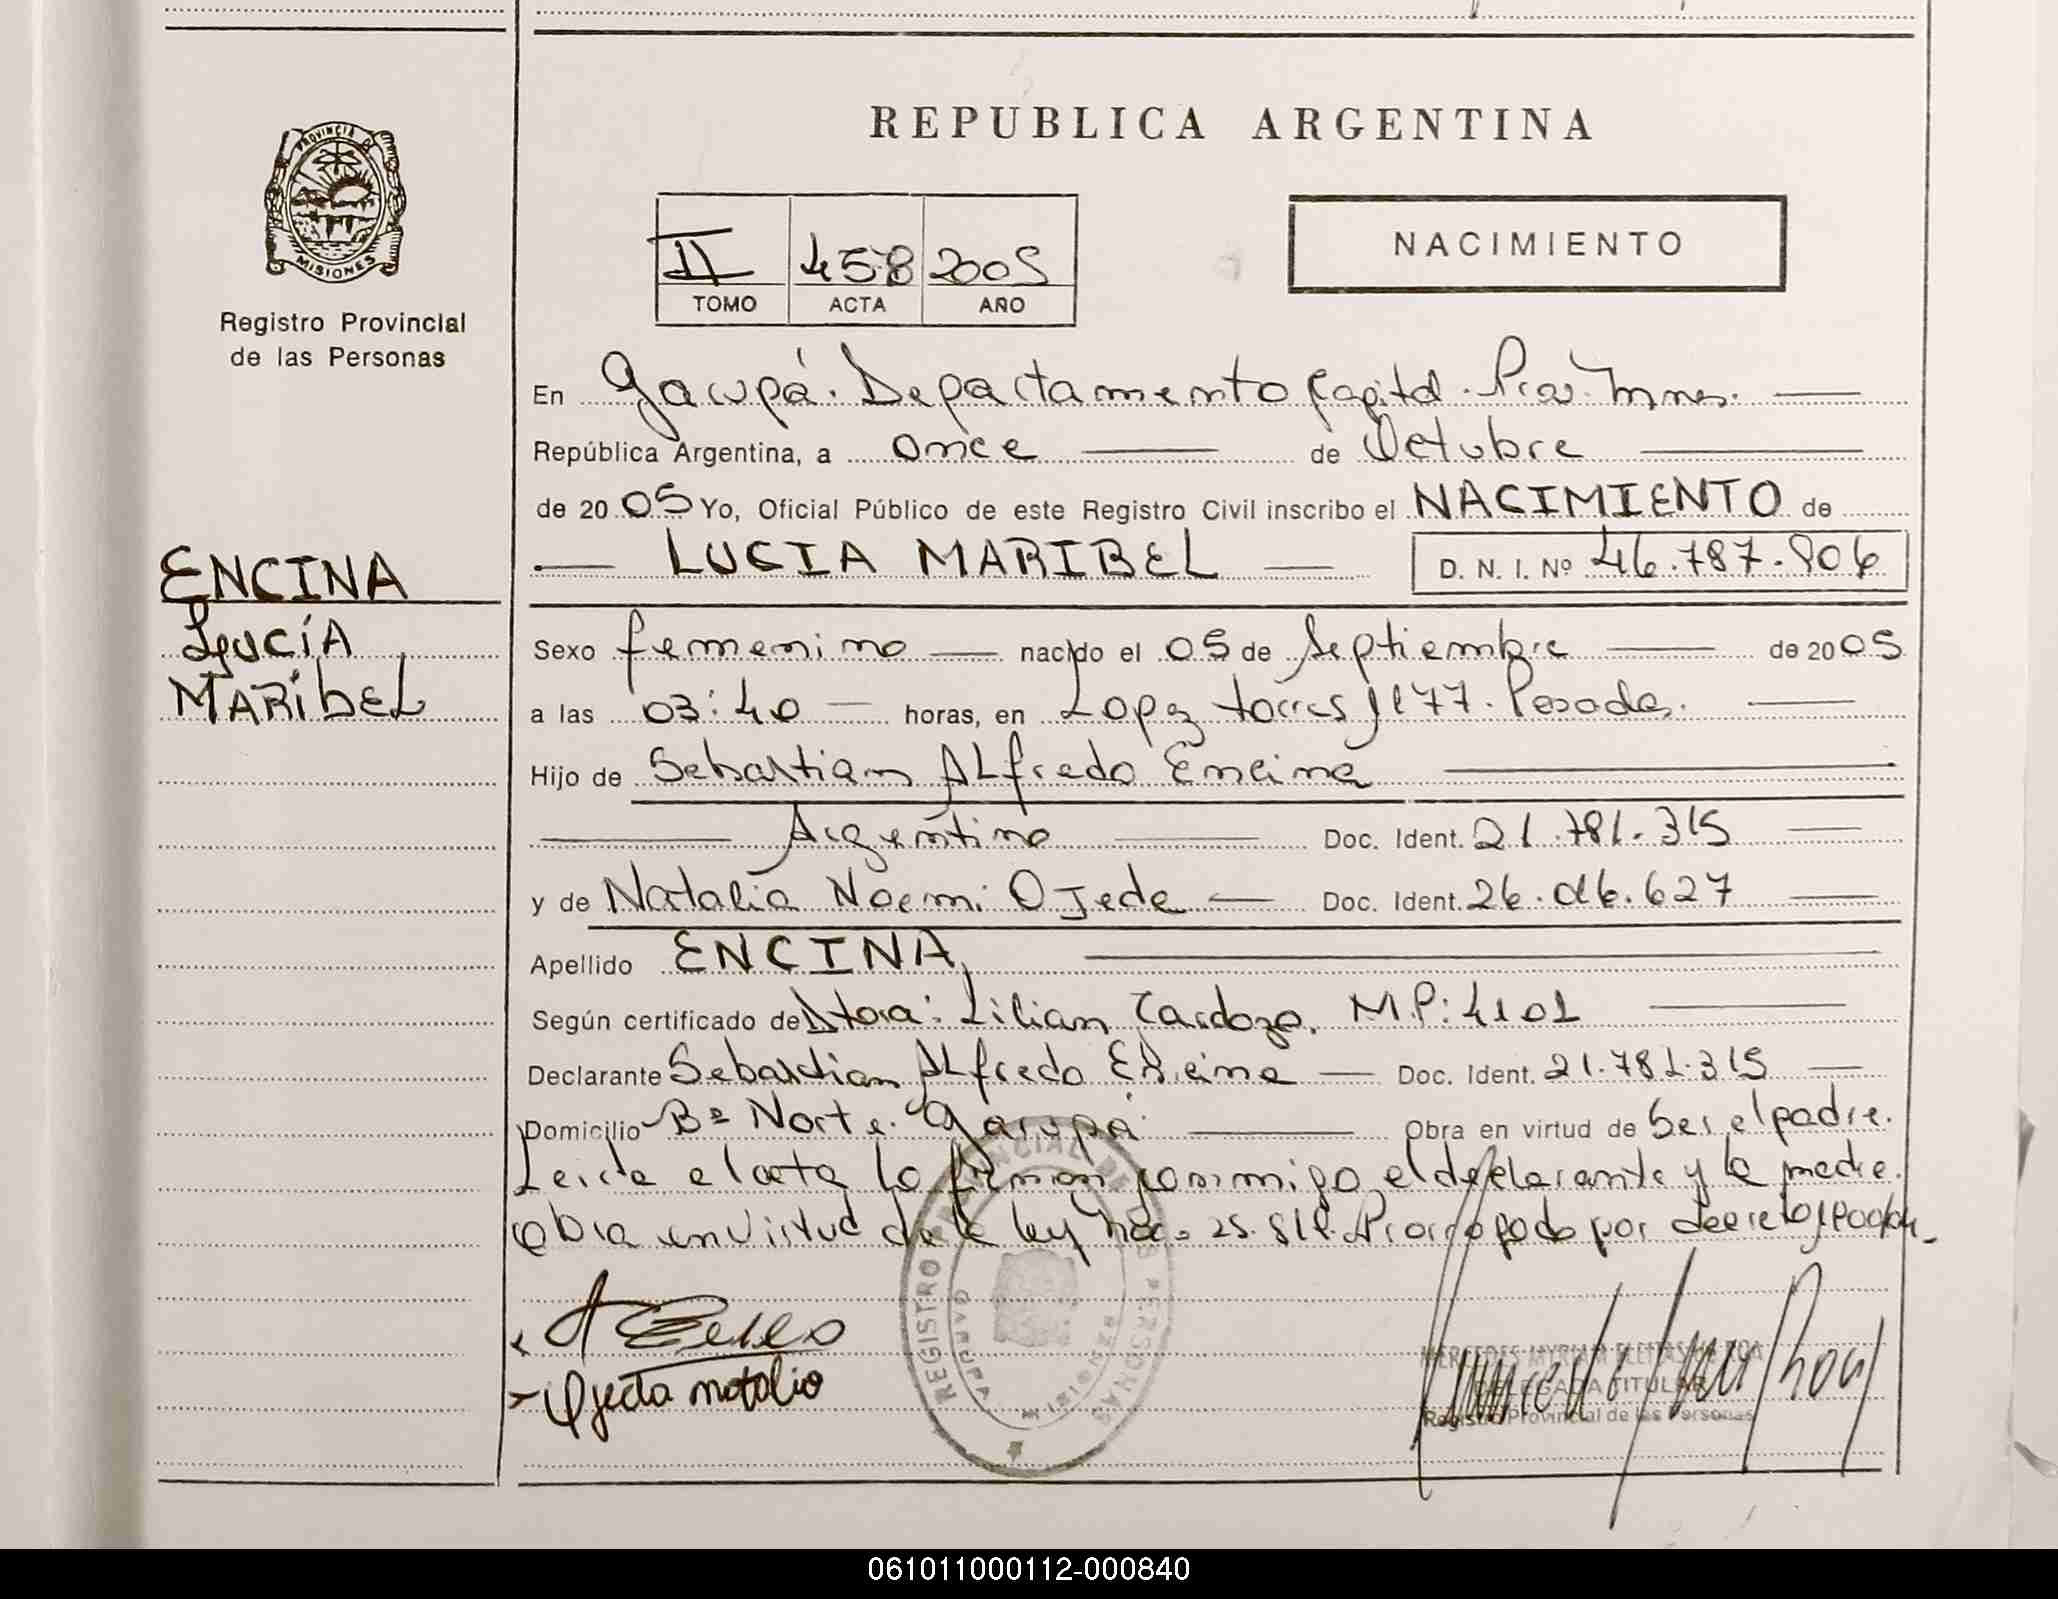 REPUBLICA ARGENTINA
PROVINCIA DE
MISIONES
Registro Provincial
de las Personas
II 458 2005
TOMO ACTA AÑO
NACIMIENTO
En Garupá. Departamento Capital. Prov. Mnes.
República Argentina, a once de Octubre
de 2005 Yo, Oficial Público de este Registro Civil inscribo el NACIMIENTO de
LUCIA MARIBEL D. N. I. Nº 46.787.906
ENCINA
LUCÍA
MARIBEL
Sexo femenino nacido el 05 de Septiembre de 2005
a las 03:40 horas, en Lopez torres 1177. Posadas.
Hijo de Sebastian Alfredo Encina
Argentino Doc. Ident. 21.781.315
y de Natalia Noemi Ojeda Doc. Ident. 26.016.627
Apellido ENCINA
Según certificado de Dtora: Lilian Cardozo. M.P: 4101
Declarante Sebastian Alfredo Encina Doc. Ident. 21.781.315
Domicilio Bº Norte. Garupá Obra en virtud de Ser el padre.
Leida el acta lo firman conmigo el declarante y la madre.
Obra en virtud de la ley nac. 25.819. Prorrogado por decreto
Ojeda natalia
REGISTRO PROVINCIAL DE LAS PERSONAS
GARUPA
MISIONES
MERCEDES MYRIAM FLEITAS DE ROA
DELEGADA TITULAR
Registro Provincial de las Personas
061011000112-000840